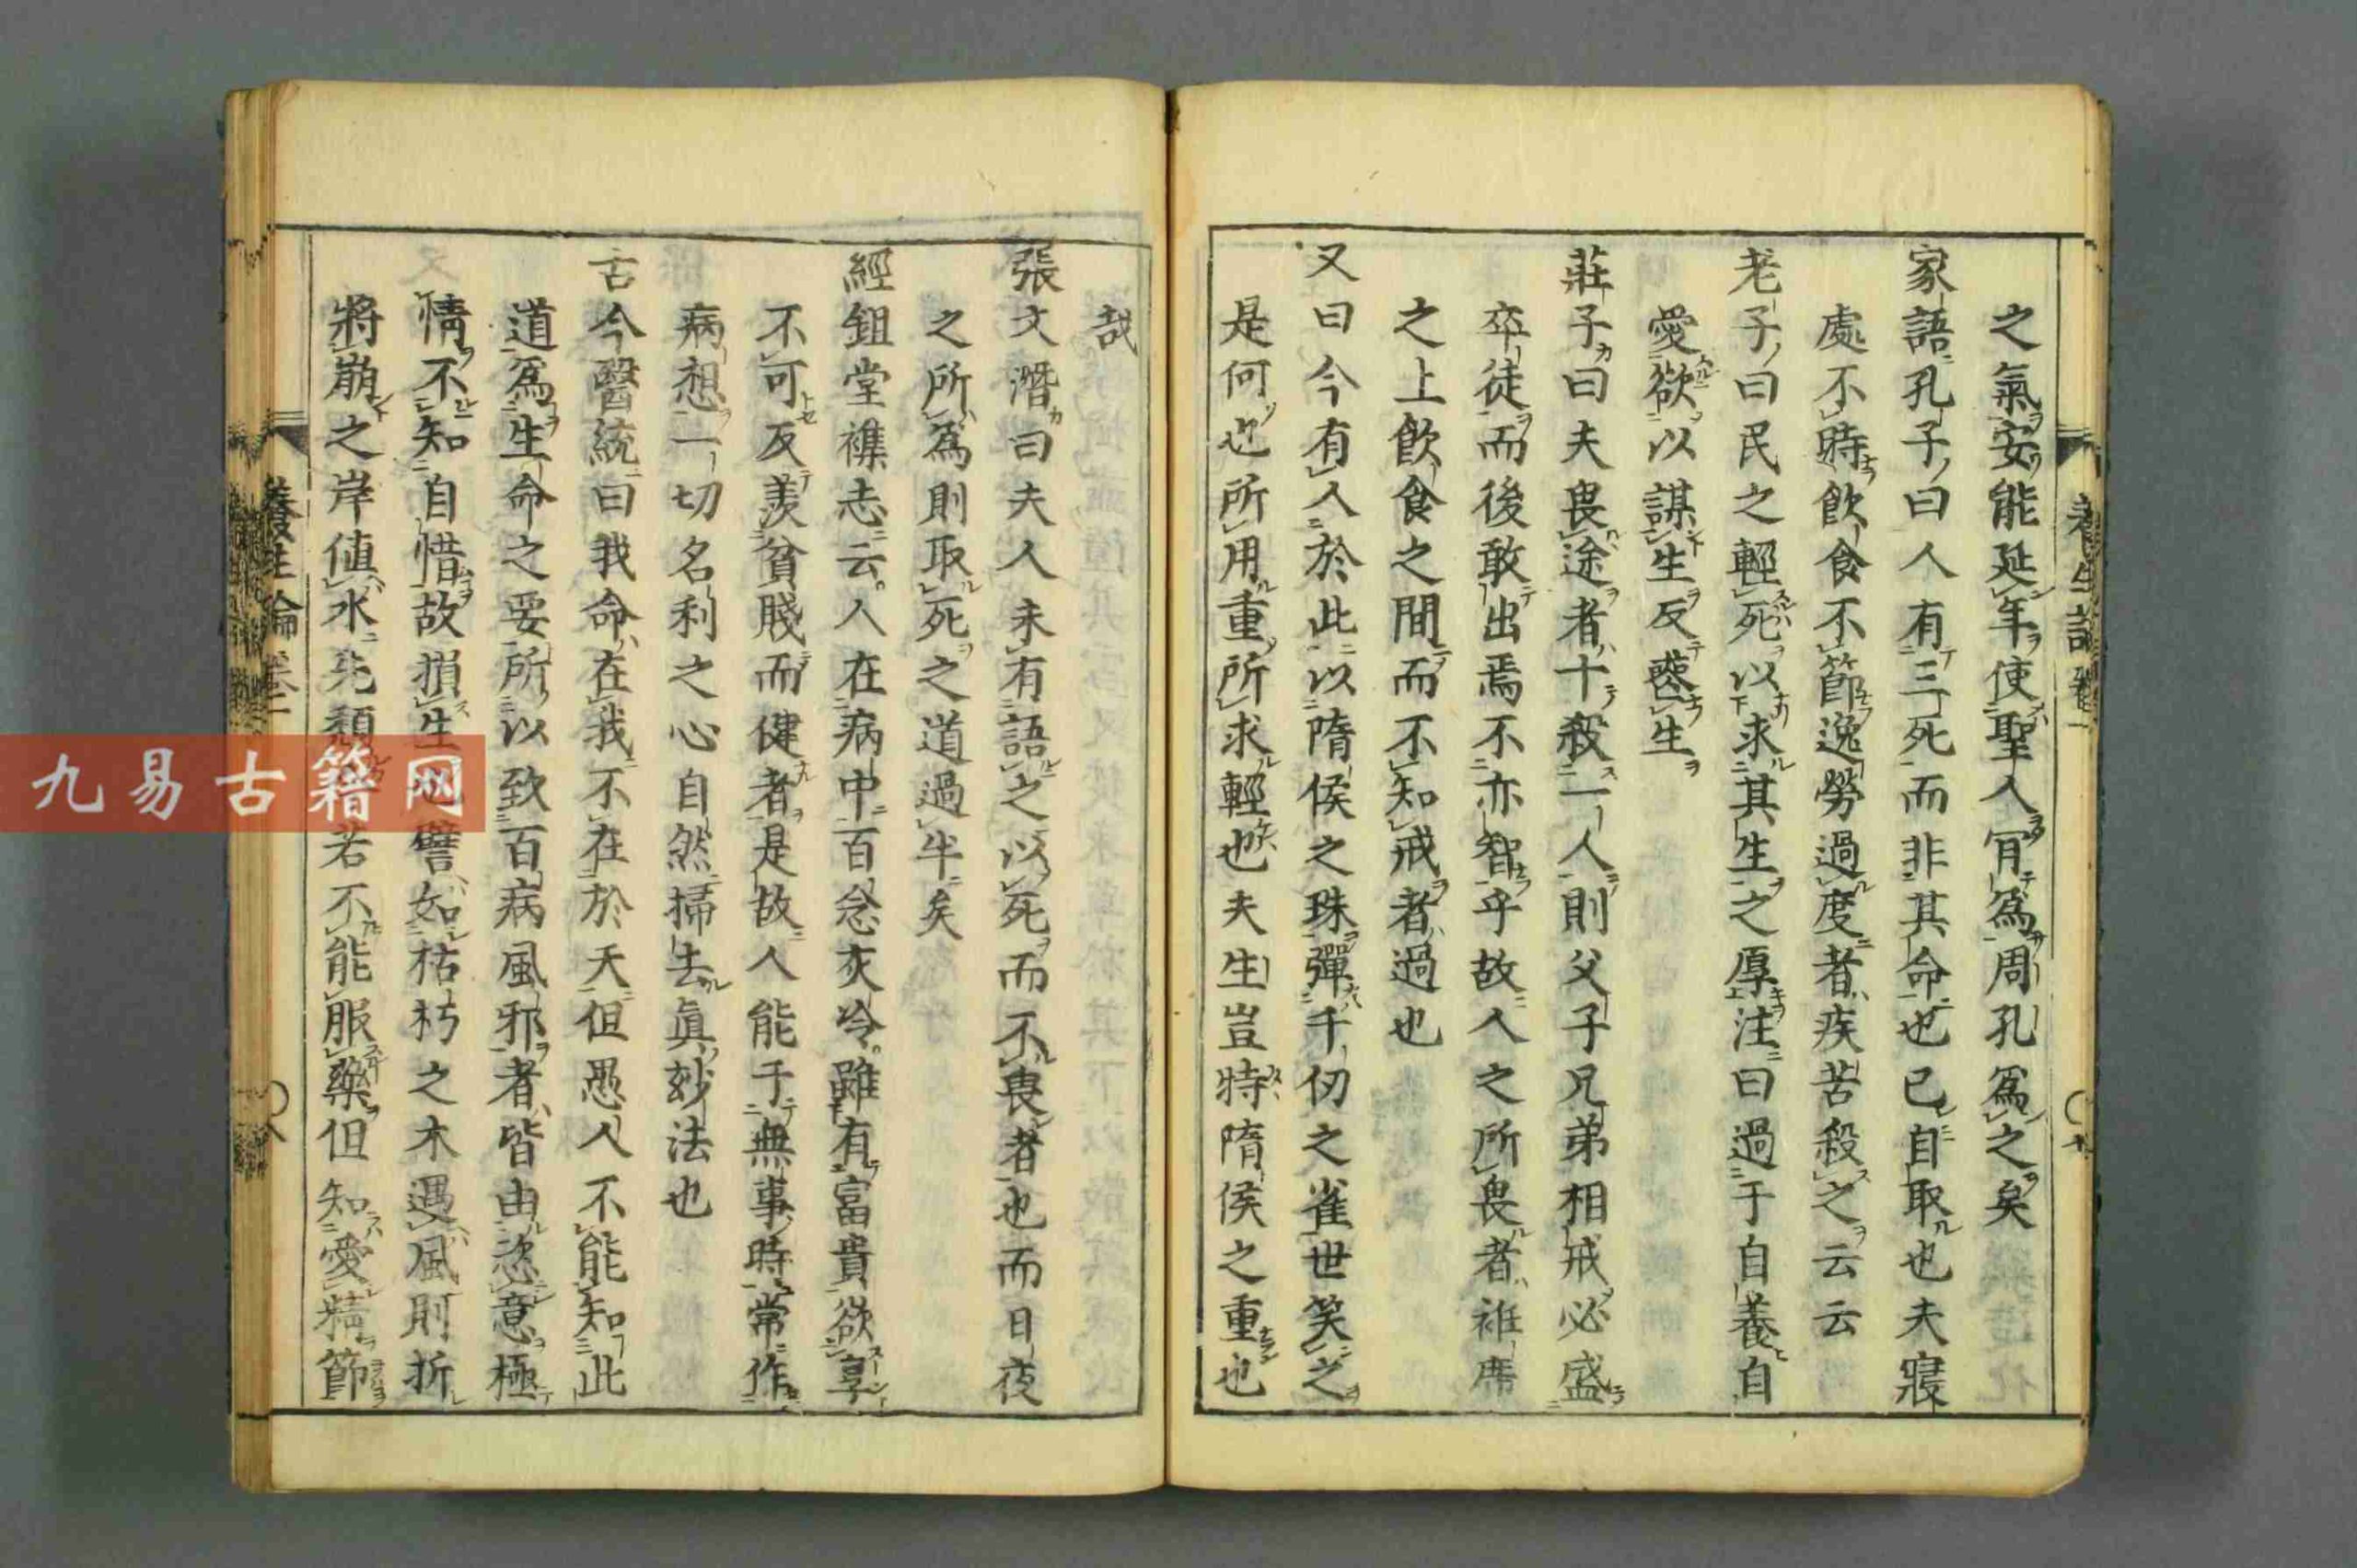 之氣安能延年使聖人肎爲周孔爲之矣
家語孔子曰人有三死而非其命也已自取也夫寢
處不時飮食不節逸勞過度者疾苦殺之云云
老子曰民之輕死以求其生之厚注曰過于自養自
愛欲以謀生反蠧生
莊子曰夫畏途者十殺一人則父子兄弟相戒必盛
卒徒而後敢出焉不亦智乎故人之所畏者袵席
之上飮食之間而不知戒者過也
又曰今有人於此以隋侯之珠彈千仞之雀世笑之
是何也所用重所求輕也夫生豈特隋侯之重也
哉
張文潛曰夫人未有語之以死而不畏者也而日夜
之所爲則取死之道過半矣
經鉏堂襍志云人在病中百念灰冷雖有富貴欲享
不可反羨貧賤而健者是故人能于無事時常作
病想一切名利之心自然掃去眞玅法也
古今醫統曰我命在我不在於天但愚人不能知此
道爲生命之要所以致百病風邪者皆由恣意極
情不知自惜故損生也譬如枯朽之木遇風則折
將崩之岸値水先頽 若不能服藥但知愛精節
養生論 卷一
九易古籍网